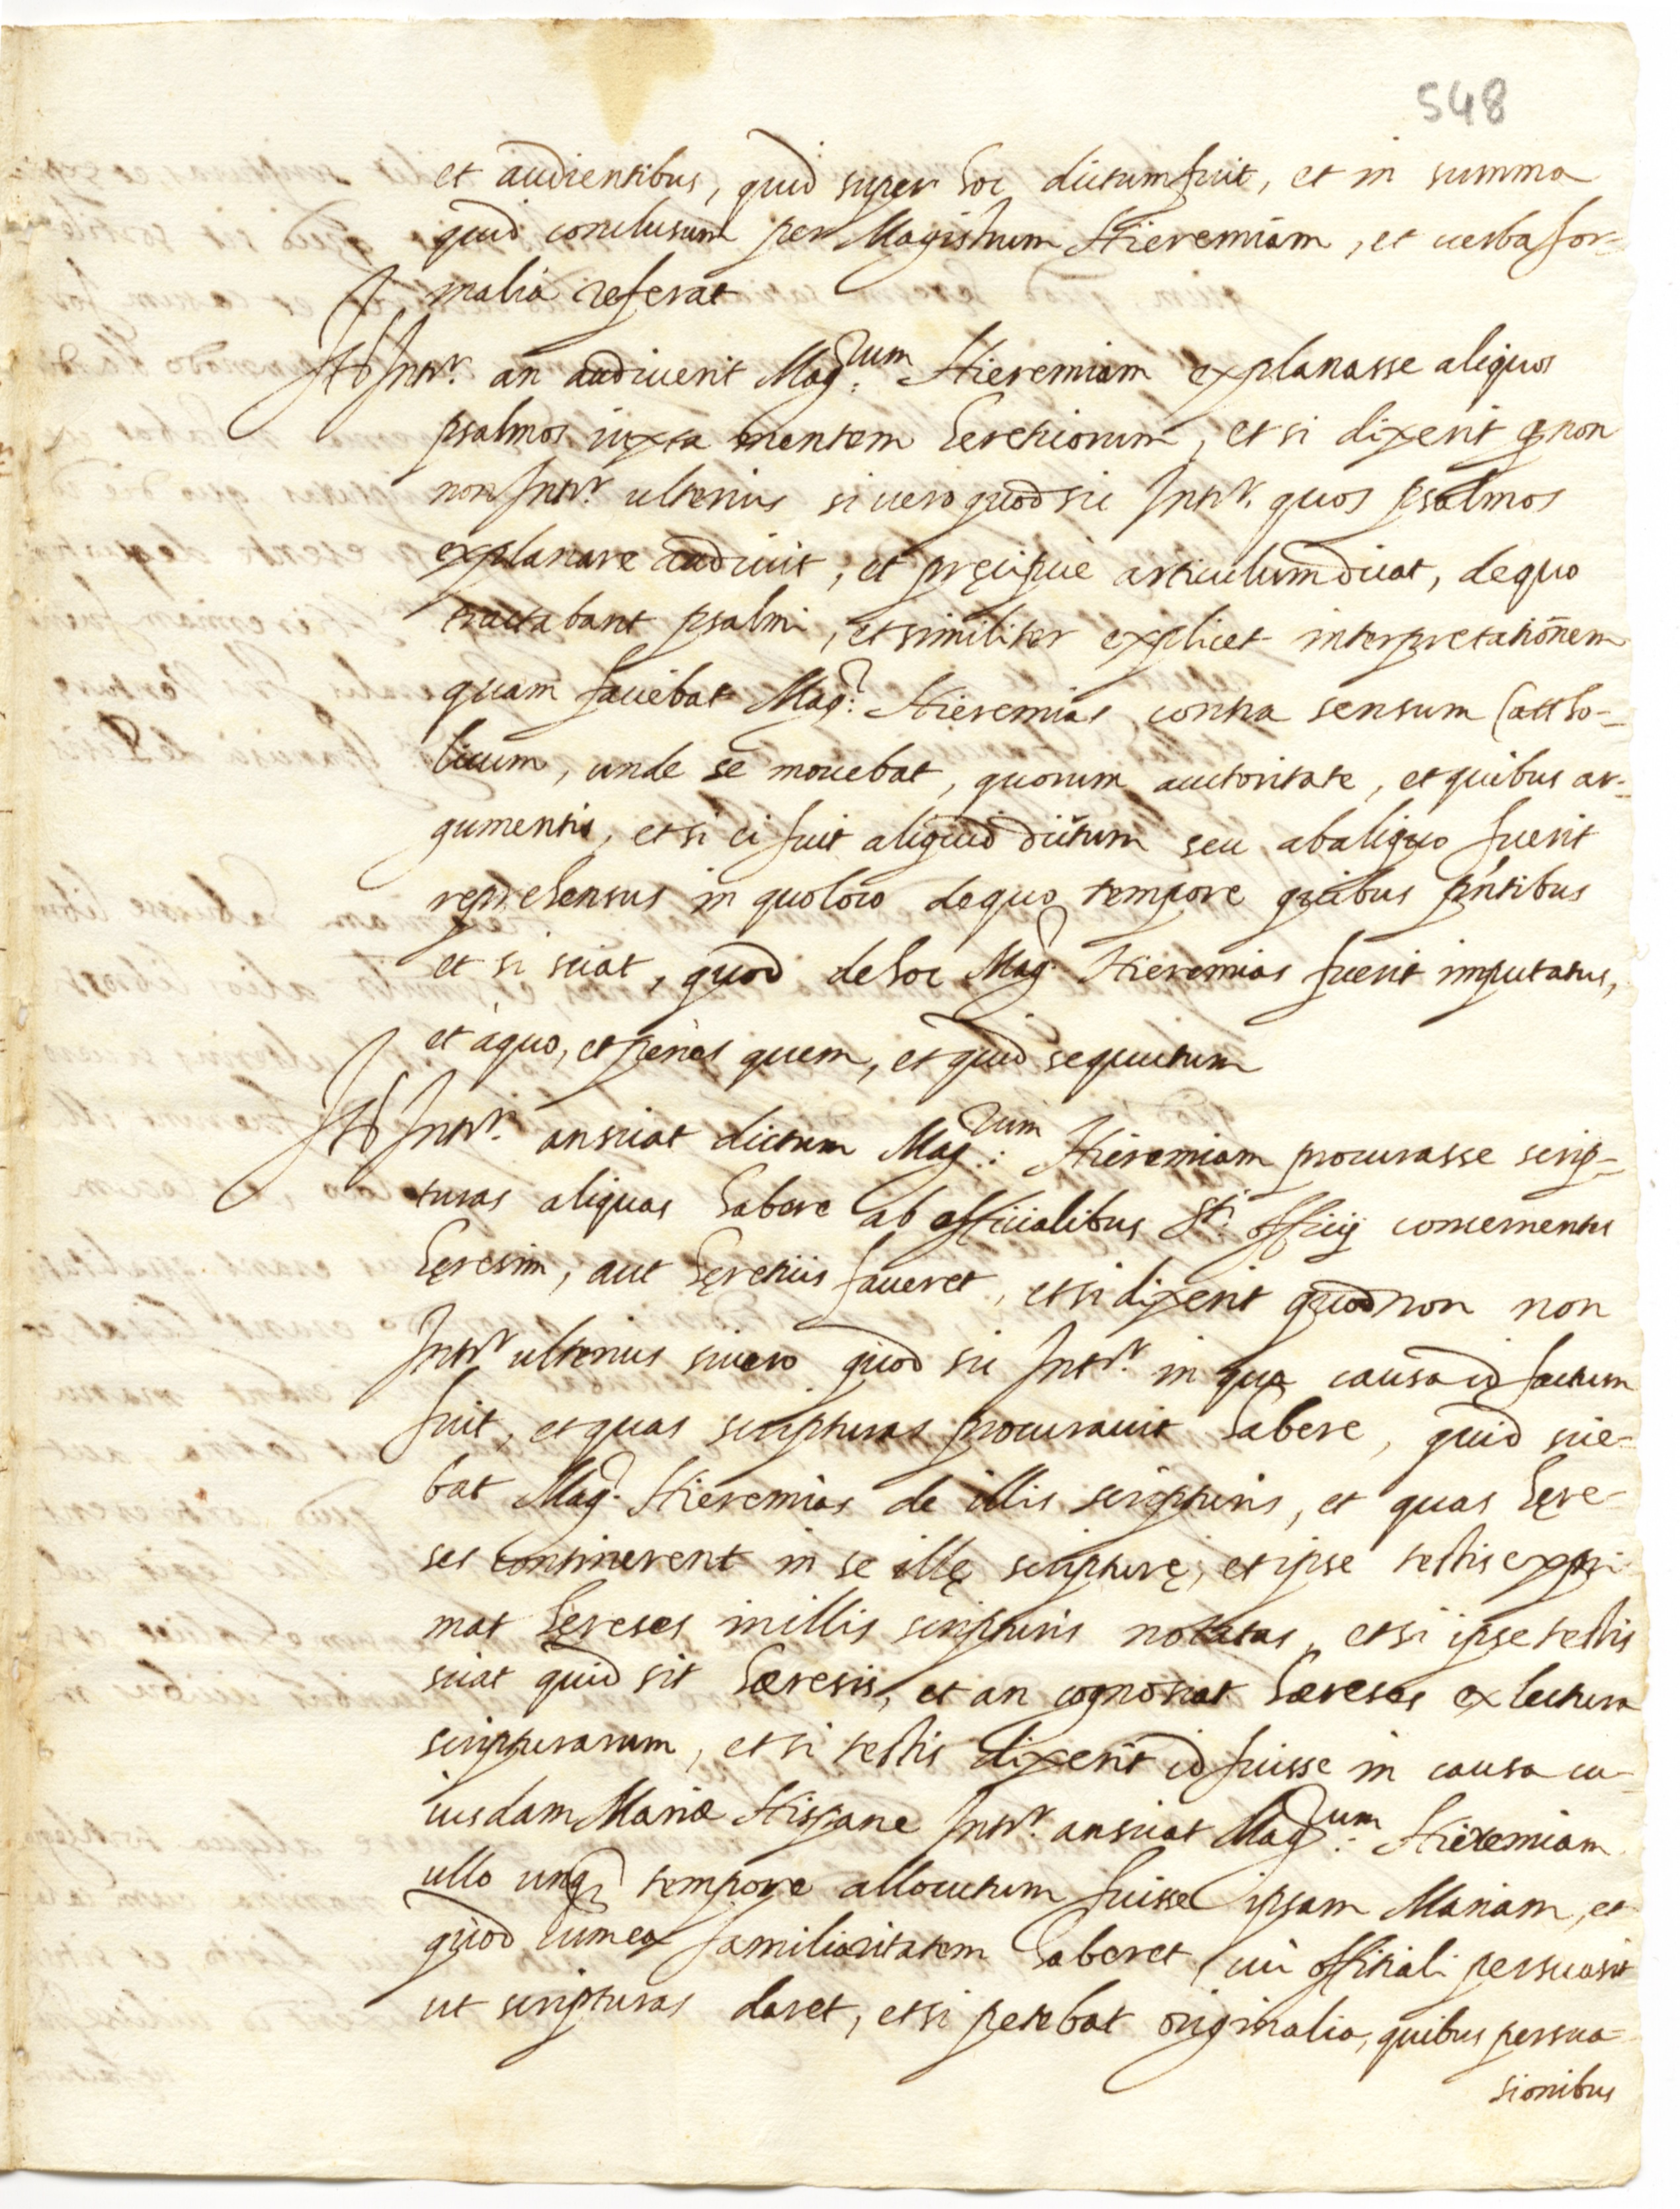 548
et audientibus, quid super hoc dictum fuit, et in summa
quid conclusum per Magistrum Hieremiam, et uerba for-
malia referat
Itẽ Intr. an audiuerit Mag.rum Hieremiam explanasse aliquos
psalmos iuxta mentem hereticorum, et si dixerit q non
non Intr. ulterius si uero quod sic Intr. quos psalmos
explanare audiuit, et pręcipue articulum dicat, de quo
tractabant psalmi, et similiter explicet interpretationem
quam faciebat Mag.r Hieremias contra sensum Catho-
licum, unde se mouebat, quorum auctoritate, et quibus ar-
gumentis, et si ei fuit aliquid dictum seu ab aliquo fuerit
reprehensus in quo loco de quo tempore quibus pñtibus
et si sciat, quod de hoc Mag.r Hieremias fuerit imputatus,
et à quo, et penès quem, et quid sequutum
Itẽ Intr. an sciat dictum Mag.rum Hieremiam procurasse scrip-
turas aliquas habere ab officialibus S.ti officij concernentes
hęresim, aut hęreticis faueret, et si dixerit quod non non
Intr. ulterius si uero quod sic Intr. in qua causa id factum
fuit, et quas scripturas procurauit habere, quid scie-
bat Mag.r Hieremias de illis scripturis, et quas hęre-
ses continerent in se illę scripturę, et ipse testis expri-
mat hęreses in illis scripturis notatas, et si ipse testis
sciat quid sit hæresis, et an cognoscat hæreses ex lectura
scripturarum, et si testis dixerit id fuisse in causa cu-
iusdam Mariæ Hispane Intr. an sciat Mag.rum Hieremiam
ullo unq̃ tempore allocutum fuisse ipsam Mariam, et
quod cum ea familiaritatem haberet, cui offitiali persuasit
ut scripturas daret, et si petebat originalia, quibus persua-
sionibus